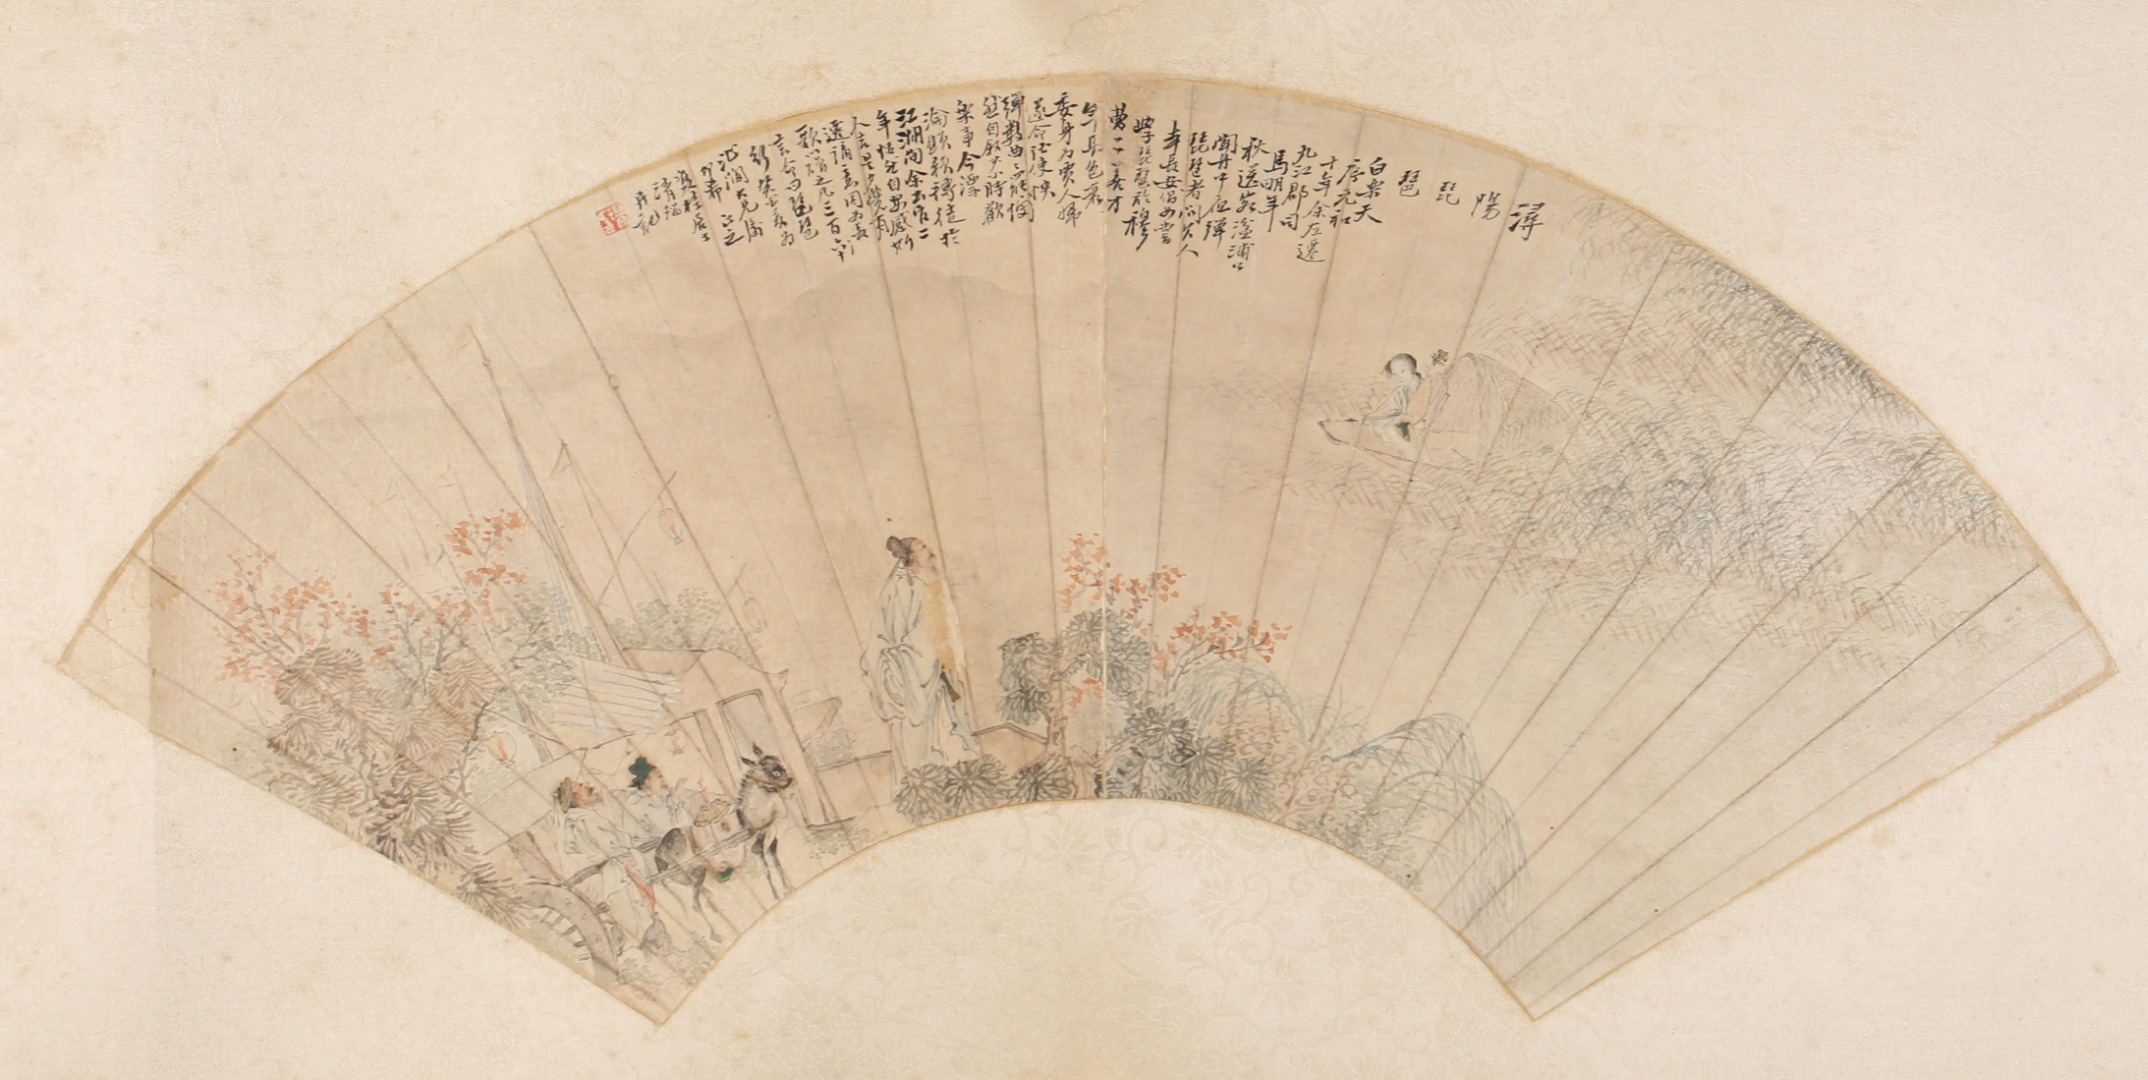 潯陽琵琶
白樂天
序元和
十年余左遷
九江郡司
馬明年
秋送客湓浦口
聞舟中夜彈
琵琶者問其人
本長安倡女嘗
學琵琶於穆
曹二善才
年長色衰
委身為賈人婦
遂命酒使快
彈數曲
然自敘少時歡
樂事今漂
淪顦顇轉徙於
江湖間余出官二
年恬然自安感斯
人言是夕覺有
遷謫意因為長
歌以贈之凡六百
言命曰琵琶
行
大兄屬
正之